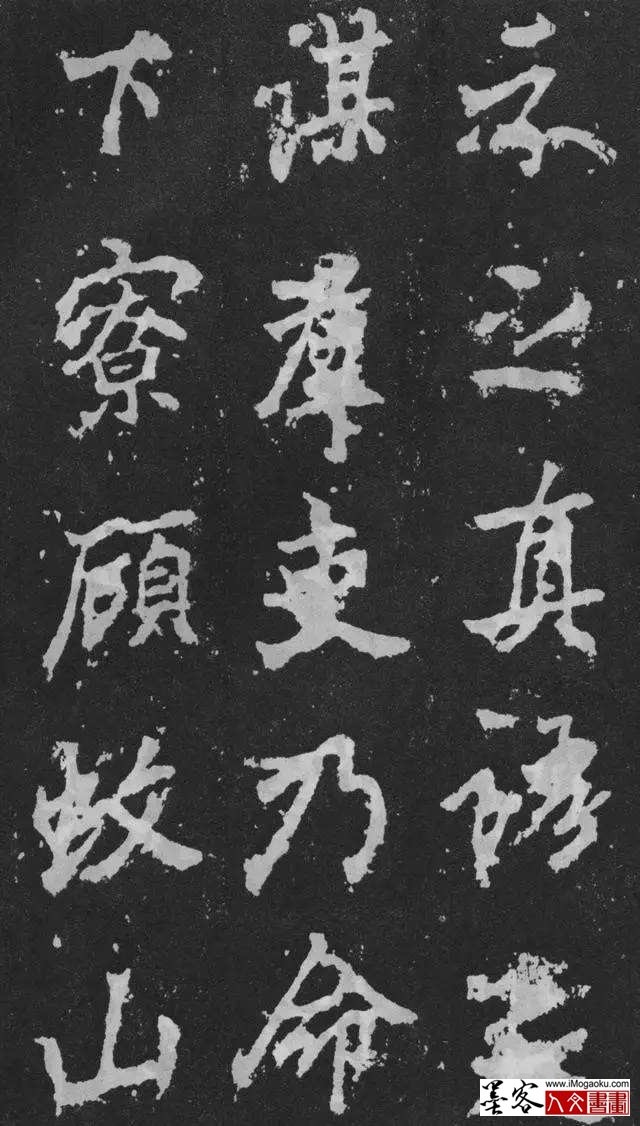 示之真語
謀羣吏乃命
下寮顧蚊山
墨客
www.iMogaoku.com
人文書畫